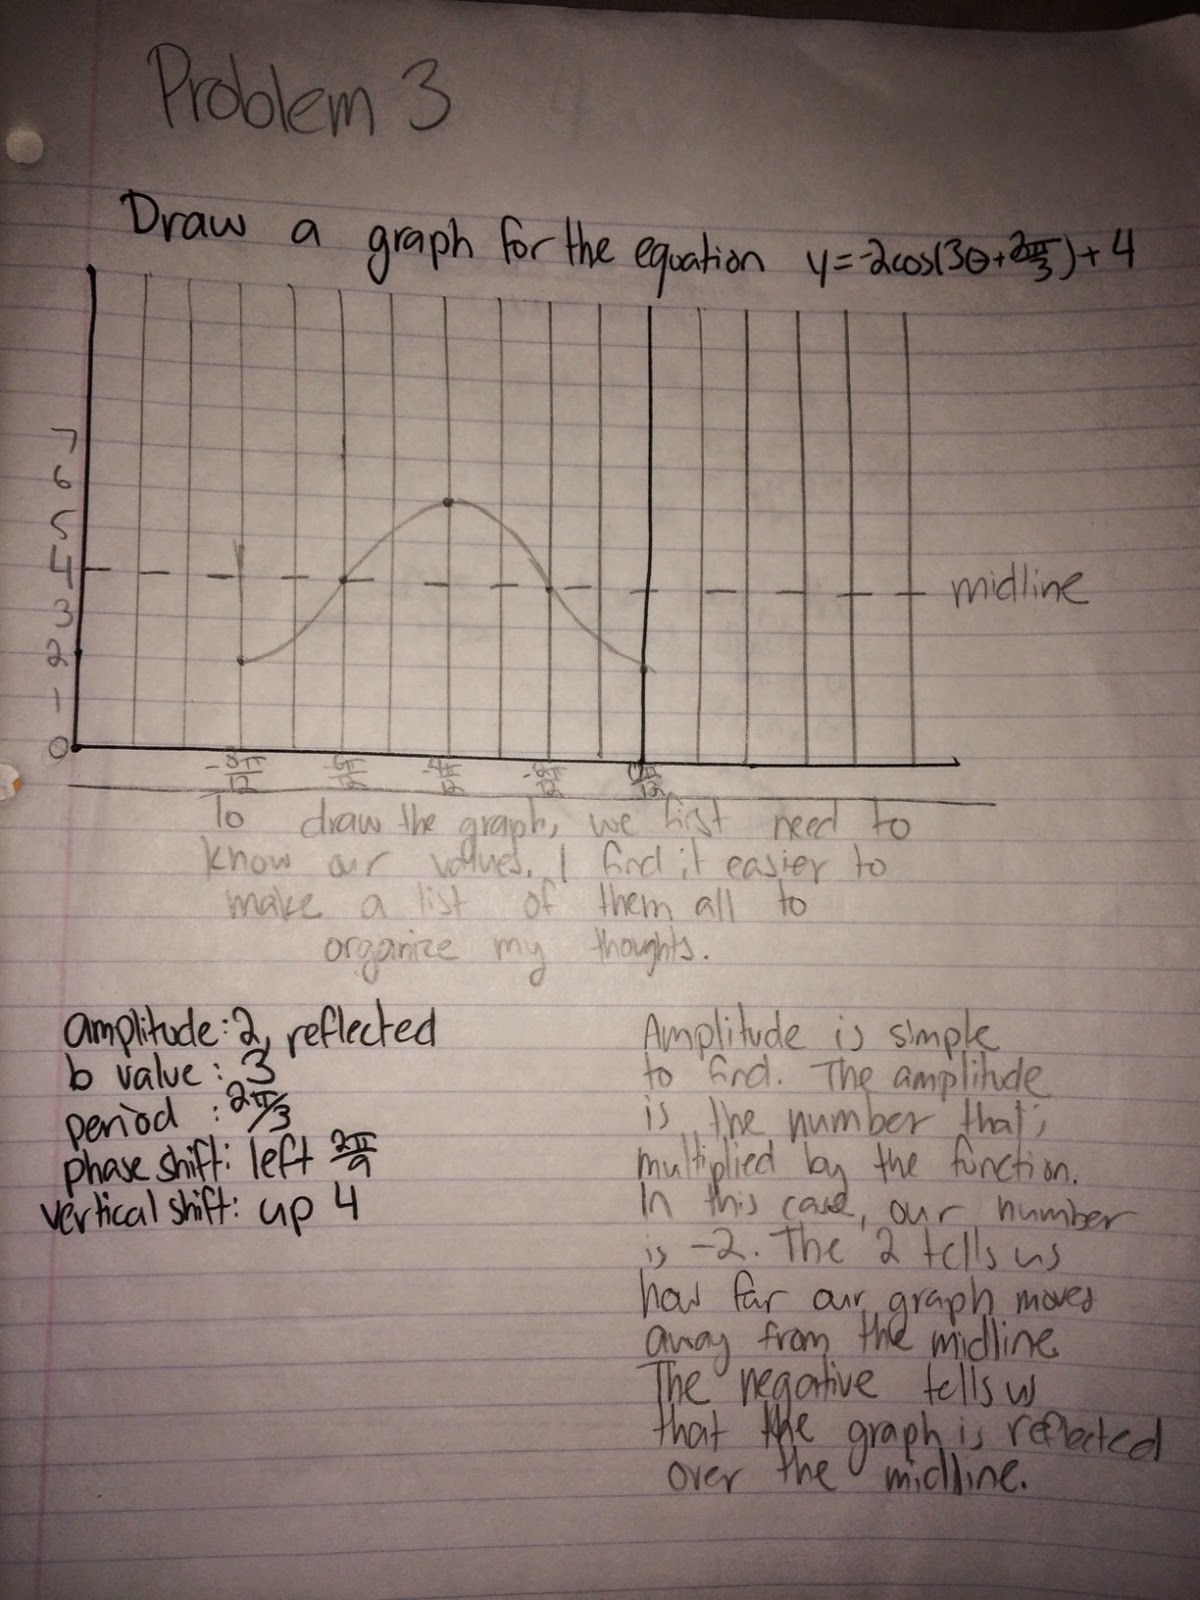 Problem 3
Draw a graph for the equation y=-2cos(3θ+2π/3)+4
7
6
5
4
midline
3
2
1
0
-8π/12 -6π/12 -4π/12 -2π/12 0π/12
To draw the graph, we first need to
know our values. I find it easier to
make a list of them all to
organize my thoughts.
amplitude: 2, reflected
b value: 3
period : 2π/3
phase shift: left 2π/9
vertical shift: up 4
Amplitude is simple
to find. The amplitude
is the number that is
multiplied by the function.
In this case, our number
is -2. The 2 tells us
how far our graph moves
away from the midline.
The negative tells us
that the graph is reflected
over the midline.